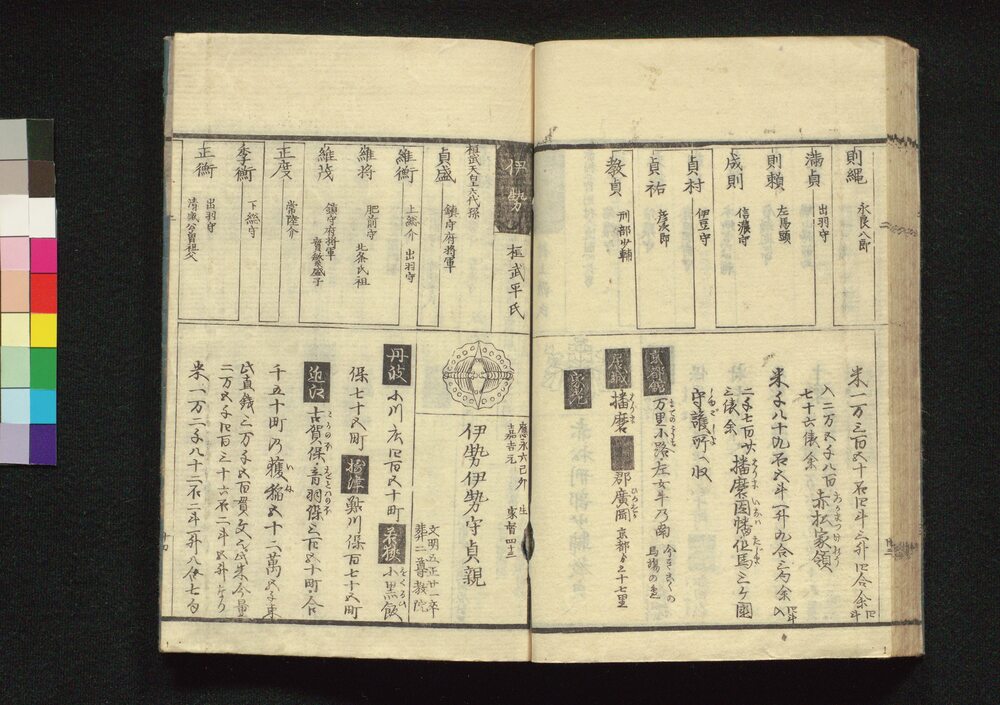 則繩 永良八郎
滿貞 出羽守
則頼 左馬頭
成則 信濃守
貞村 伊豆守
貞祐 彦次郎
教貞 刑部少輔
米一万三百五十石四斗三升四合余
入二万五千八百
七十六俵余
赤松家領
米千八十九石五斗一升九合三勺余
二千七百廿
三俵余
播磨因幡但馬三ケ國
守護所ヘ収
京都館
万里小路左女牛乃南
居城
播磨
郡廣岡
京都ヨリ三十七里
家老
伊勢
桓武平氏
桓武天皇六代孫
貞盛 鎮守府將軍
維衡 上総介 出羽守
維將 肥前守 北条氏祖
維茂 鎮守府將軍
實繁盛子
正度 常陸介
季衡 下総守
正衡 出羽守
清盛公曽祖父
應永六己夘 生
嘉吉元 家督四十三
伊勢伊勢守貞親
文明五正廿一卒
葬二尊教院
丹波
小川庄四百五十町
若狭
小黒飯
保七十五町
摂津
野川保百七十五町
近江
古賀保音羽保三百五十町合
千五十町乃穫稲五十二萬五千束
此直錢二万千五百貫文
二万五千四百三十六石二斗五升
米一万二千八十二石二斗二升八合七勺